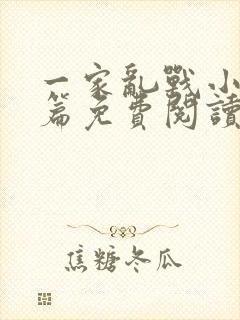 一家亂戰小
篇免費閱讀
焦糖冬瓜